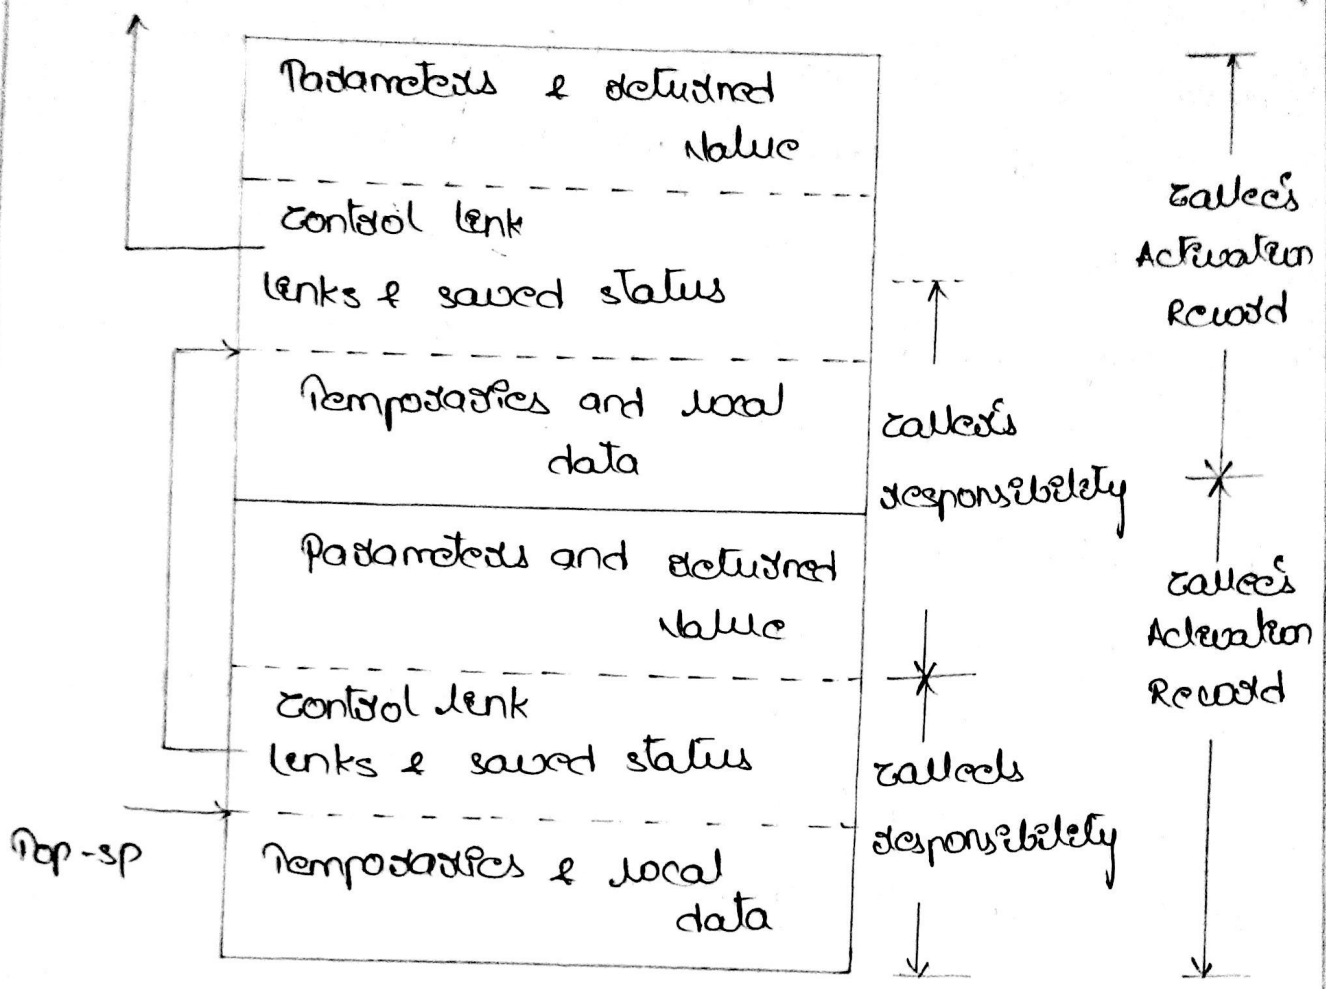 Parameters & returned
value
control link
links & saved status
Temporaries and local
data
Parameters and returned
value
control link
links & saved status
Temporaries & local
data
Top-sp
caller's
responsibility
callee's
responsibility
callee's
Activation
Record
callee's
Activation
Record